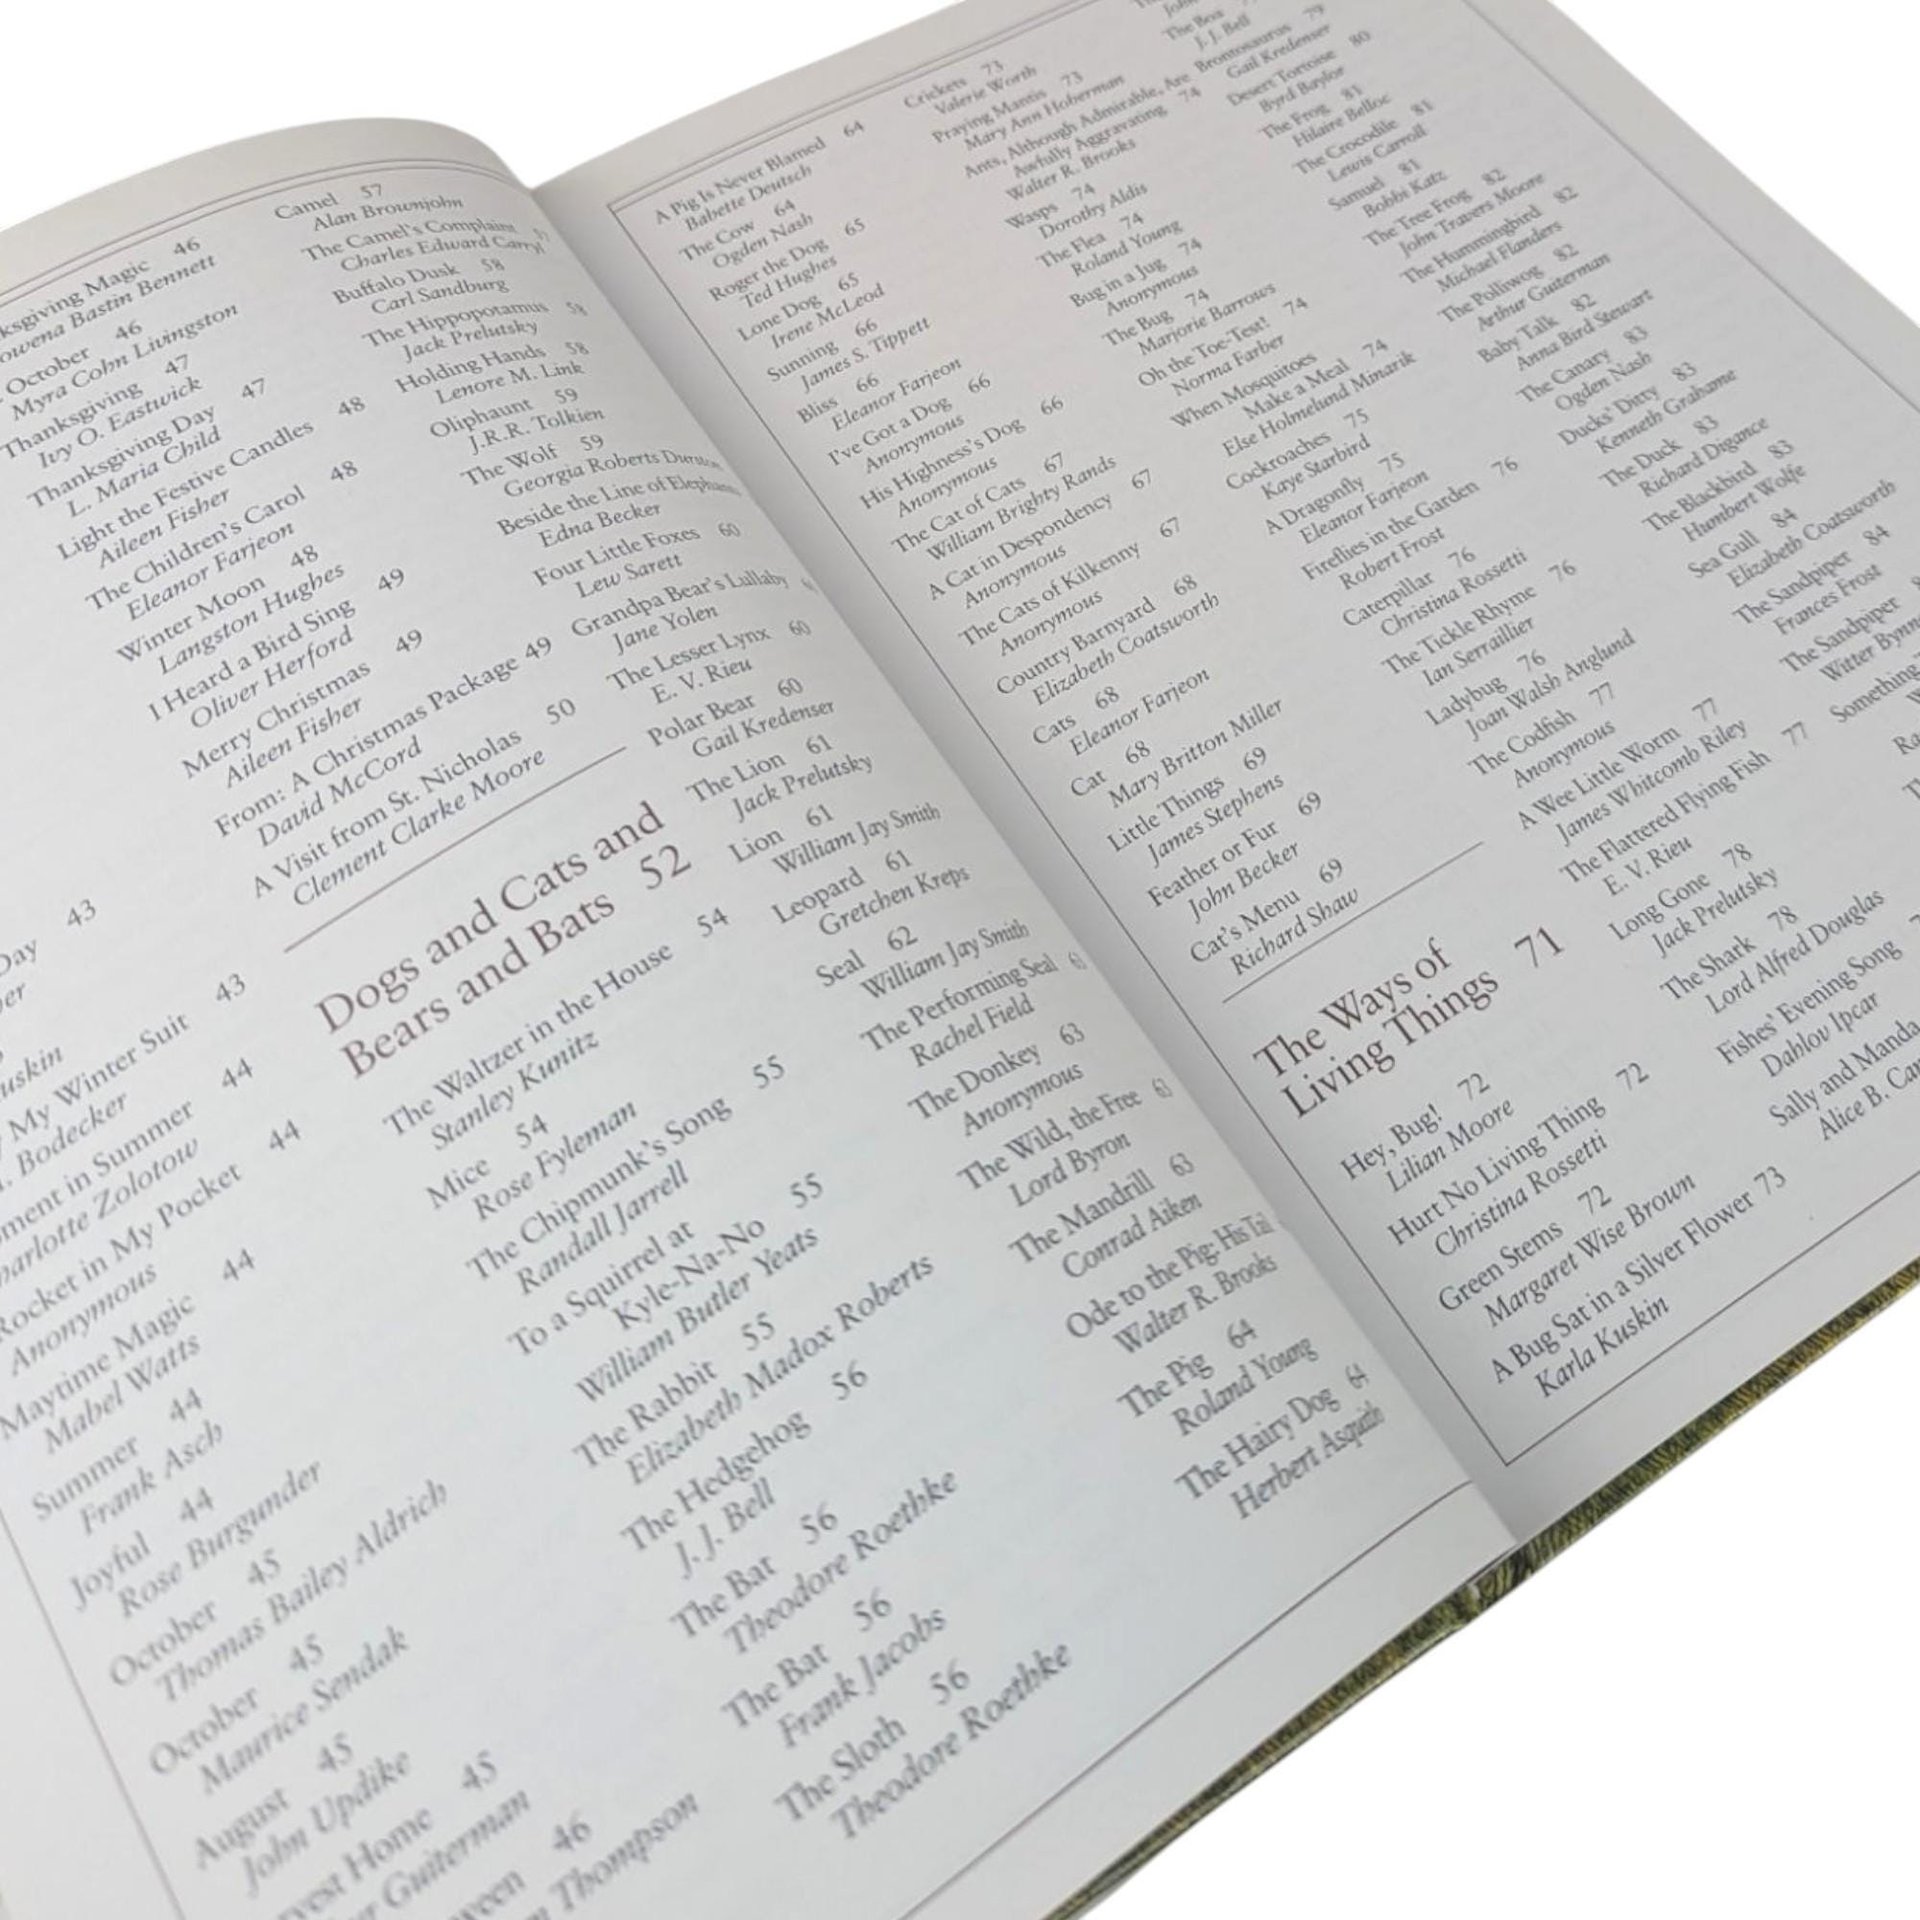 43
Day
43
My Winter Suit
Bodecker
44
in Summer
Zolotow
44
Rocket in My Pocket
Anonymous
44
Maytime Magic
Mabel Watts
Summer 44
Frank Asch
Joyful 44
Rose Burgunder
October 45
Thomas Bailey Aldrich
October 45
Maurice Sendak
August 45
John Updike
Home 45
Guiterman
46
Thompson
Magic 46
Bastin Bennett
October 46
Myra Cohn Livingston
Thanksgiving 47
Ivy O. Eastwick
Thanksgiving Day 47
L. Maria Child
Light the Festive Candles 48
Aileen Fisher
The Children's Carol 48
Eleanor Farjeon
Winter Moon 48
Langston Hughes
I Heard a Bird Sing 49
Oliver Herford
Merry Christmas 49
Aileen Fisher
From: A Christmas Package 49
David McCord
A Visit from St. Nicholas 50
Clement Clarke Moore
Dogs and Cats and
Bears and Bats 52
The Waltzer in the House 54
Stanley Kunitz
Mice 54
Rose Fyleman
The Chipmunk's Song 55
Randall Jarrell
To a Squirrel at
Kyle-Na-No 55
William Butler Yeats
The Rabbit 55
Elizabeth Madox Roberts
The Hedgehog 56
J. J. Bell
The Bat 56
Theodore Roethke
The Bat 56
Frank Jacobs
The Sloth 56
Theodore Roethke
Camel 57
Alan Brownjohn
The Camel's Complaint
Charles Edward Carryl
Buffalo Dusk 58
Carl Sandburg
The Hippopotamus 58
Jack Prelutsky
Holding Hands 58
Lenore M. Link
Oliphaunt 59
J.R.R. Tolkien
The Wolf 59
Georgia Roberts Durston
Beside the Line of Elephants
Edna Becker
Four Little Foxes 60
Lew Sarett
Grandpa Bear's Lullaby
Jane Yolen
The Lesser Lynx 60
E. V. Rieu
Polar Bear 60
Gail Kredenser
The Lion 61
Jack Prelutsky
Lion 61
William Jay Smith
Leopard 61
Gretchen Kreps
Seal 62
William Jay Smith
The Performing Seal
Rachel Field
The Donkey 63
Anonymous
The Wild, the Free 63
Lord Byron
The Mandrill 63
Conrad Aiken
Ode to the Pig: His Tail
Walter R. Brooks
The Pig 64
Roland Young
The Hairy Dog 64
Herbert Asquith
A Pig Is Never Blamed 64
Babette Deutsch
The Cow 64
Ogden Nash
Roger the Dog 65
Ted Hughes
Lone Dog 65
Irene McLeod
Sunning 66
James S. Tippett
Bliss 66
Eleanor Farjeon
I've Got a Dog 66
Anonymous
His Highness's Dog 66
Anonymous
The Cat of Cats 67
William Brighty Rands
A Cat in Despondency 67
Anonymous
The Cats of Kilkenny 67
Anonymous
Country Barnyard 68
Elizabeth Coatsworth
Cats 68
Eleanor Farjeon
Cat 68
Mary Britton Miller
Little Things 69
James Stephens
Feather or Fur 69
John Becker
Cat's Menu 69
Richard Shaw
The Ways of
Living Things 71
Hey, Bug! 72
Lilian Moore
Hurt No Living Thing 72
Christina Rossetti
Green Stems 72
Margaret Wise Brown
A Bug Sat in a Silver Flower 73
Karla Kuskin
Crickets 73
Valerie Worth
Praying Mantis 73
Mary Ann Hoberman
Ants, Although Admirable, Are
Awfully Aggravating 74
Walter R. Brooks
Wasps 74
Dorothy Aldis
The Flea 74
Roland Young
Bug in a Jug 74
Anonymous
The Bug 74
Marjorie Barrows
Oh the Toe-Test! 74
Norma Farber
When Mosquitoes
Make a Meal 74
Else Holmelund Minarik
Cockroaches 75
Kaye Starbird
A Dragonfly 75
Eleanor Farjeon
Fireflies in the Garden 76
Robert Frost
Caterpillar 76
Christina Rossetti
The Tickle Rhyme 76
Ian Serraillier
Ladybug 76
Joan Walsh Anglund
The Codfish 77
Anonymous
A Wee Little Worm 77
James Whitcomb Riley
The Flattered Flying Fish 77
E. V. Rieu
Long Gone 78
Jack Prelutsky
The Shark 78
Lord Alfred Douglas
Fishes' Evening Song
Dahlov Ipcar
Sally and Manda
Alice B.
The Boa
J. J. Bell
Brontosaurus 79
Gail Kredenser
Desert Tortoise 80
Byrd Baylor
The Frog 81
Hilaire Belloc
The Crocodile 81
Lewis Carroll
Samuel 81
Bobbi Katz
The Tree Frog 82
John Travers Moore
The Hummingbird 82
Michael Flanders
The Polliwog 82
Arthur Guiterman
Baby Talk 82
Anna Bird Stewart
The Canary 83
Ogden Nash
Ducks' Ditty 83
Kenneth Grahame
The Duck 83
Richard Digance
The Blackbird 83
Humbert Wolfe
Sea Gull 84
Elizabeth Coatsworth
The Sandpiper 84
Frances Frost
The Sandpiper
Witter
Something